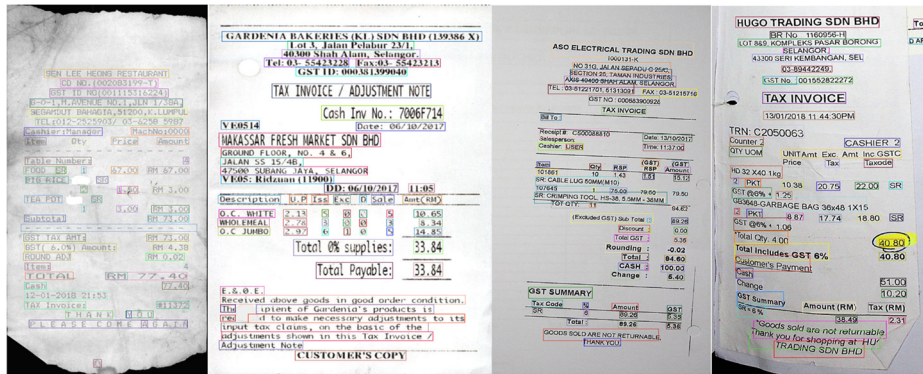 SEN LEE HEONG RESTAURANT
CO NO.(002083199-T)
GST ID NO(001115316224)
SEGAMBUT BAHAGIA,51200,K.LUMPUR
Cashier:Manager MachNo:0000
Item Qty Price Amount
Table Number: 4
FOOD SR 1 67.00 RM 67.00
PIG RICE SR
3 1.00 RM 3.00
TEA POT SR
3.00 RM 3.00
Subtotal RM 73.00
GST TAX AMT: RM 73.00
GST( 6.0%) Amount: RM 4.38
ROUND ADJ RM 0.02
Items: 4
TOTAL RM 77.40
Cash 77.40
12-01-2018 21:53
TAX Invoice: #11372
THANK YOU
PLEASE COME AGAIN
GARDENIA BAKERIES (KL) SDN BHD (139386 X)
Lot 3, Jalan Pelabur 23/1,
40300 Shah Alam, Selangor.
Tel: 03- 55423228 Fax:03- 55423213
GST ID: 000381399040
TAX INVOICE / ADJUSTMENT NOTE
Cash Inv No.: 7006F714
VE0514 Date: 06/10/2017
MAKASSAR FRESH MARKET SDN BHD
GROUND FLOOR, NO. 4 & 6,
JALAN SS 15/4B,
47500 SUBANG JAYA, SELANGOR
VE05: Ridzuan (11900)
DD: 06/10/2017 11:05
Description U.P Iss Exc D Sale Amt(RM)
O.C. WHITE 2.13 5 0 5 10.65
WHOLEMEAL 2.78 3 0 3 8.34
O.C JUMBO 2.97 5 5 14.85
Total 0% supplies: 33.84
Total Payable: 33.84
E.&.O.E.
Received above goods in good order condition.
The ipient of Gardenia's products is
d to make necessary adjustments to its
input tax claims, on the basis of the
adjustments shown in this Tax Invoice /
Adjustment Note
CUSTOMER'S COPY
ASO ELECTRICAL TRADING SDN BHD
1000131-K
NO 31G, JALAN SEPADU C 25/C,
SECTION 25, TAMAN INDUSTRIES
AXIS 40400 SHAH ALAM, SELANGOR
TEL : 03-51221701, 51313091 FAX : 03-51218718
GST NO : 000883900928
TAX INVOICE
Bill To :
Receipt# : CS00088810 Date: 13/10/2017
Salesperson : Time: 11:37:00
Cashier: USER
Item Qty RSP (GST) RSP (GST) Amount
101861 10 1.43 1.51 15.12
SR: CABLE LUG 50MM(M10)
107645 1 75.00 79.50 79.50
SR: CRIMPING TOOL, HS-38, 5.5MM - 38MM
TOT QTY: 11 94.62
(Excluded GST) Sub Total : 89.26
Discount : 0.00
Total GST : 5.36
Rounding : -0.02
Total : 94.60
CASH : 100.00
Change : 5.40
GST SUMMARY
Tax Code % Amount GST
SR 6 89.26 5.36
Total : 89.26 5.36
GOODS SOLD ARE NOT RETURNABLE,
THANK YOU.
HUGO TRADING SDN BHD
BR No 1160956-H
LOT 8&9, KOMPLEKS PASAR BORONG
SELANGOR,
43300 SERI KEMBANGAN, SEL
03-89442249
GST No : 001552822272
TAX INVOICE
13/01/2018 11:44:30PM
TRN: C2050063
Counter 2 CASHIER 2
QTY UOM UNITAmt Exc. Amt Inc GSTC
Price Tax Taxcode
HD 32 X40 1kg
2 PKT 10.38 20.75 22.00 SR
GST @6% + 1.25
GB3648-GARBAGE BAG 36x48 1X15
2 PKT 8.87 17.74 18.80 SR
GST @6% + 1.06
Total Qty. 4.00 40.80
Total Includes GST 6% 40.80
Customer's Payment
Cash 51.00
Change 10.20
GST Summary Amount (RM) Tax (RM)
SR = 6 % 38.49 2.31
"Goods sold are not returnable
Thank you for shopping at HU
TRADING SDN BHD